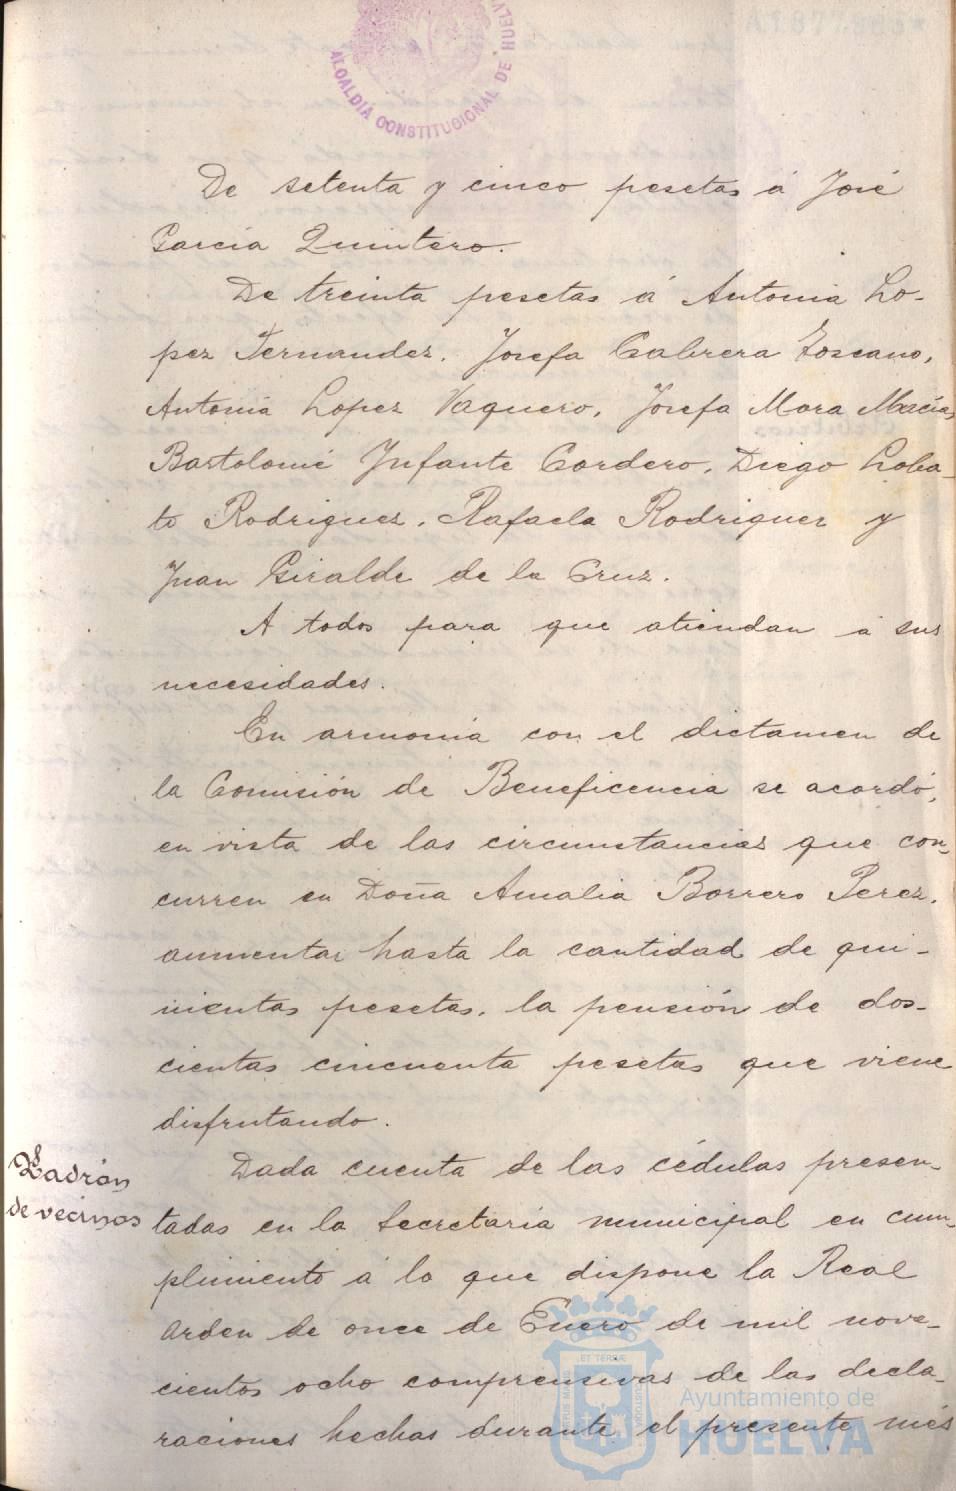 ALCALDIA CONSTITUCIONAL DE HUELVA
De setenta y cinco pesetas á José
García Quintero.
De treinta pesetas á Antonia Lo-
pez Fernandez. Josefa Cabrera Toscano,
Antonia Lopez Vaquero, Josefa Mora Macías
Bartolomé Infante Cordero, Diego Loba-
to Rodriguez, Rafaela Rodriguez y
Juan Giralde de la Cruz.
A todos para que atiendan á sus
necesidades.
En armonía con el dictamen de
la Comisión de Beneficencia se acordó,
en vista de las circunstancias que con-
curren en Doña Amalia Borrero Perez,
aumentar hasta la cantidad de qui-
nientas pesetas, la pensión de dos-
cientas cincuenta pesetas que viene
disfrutando.
Padrón
de vecinos
Dada cuenta de las cédulas presen-
tadas en la Secretaría municipal en cum-
plimiento á lo que dispone la Real
orden de once de Enero de mil nove-
cientos ocho comprensivas de las decla-
raciones hechas durante el presente mes
Ayuntamiento de
HUELVA